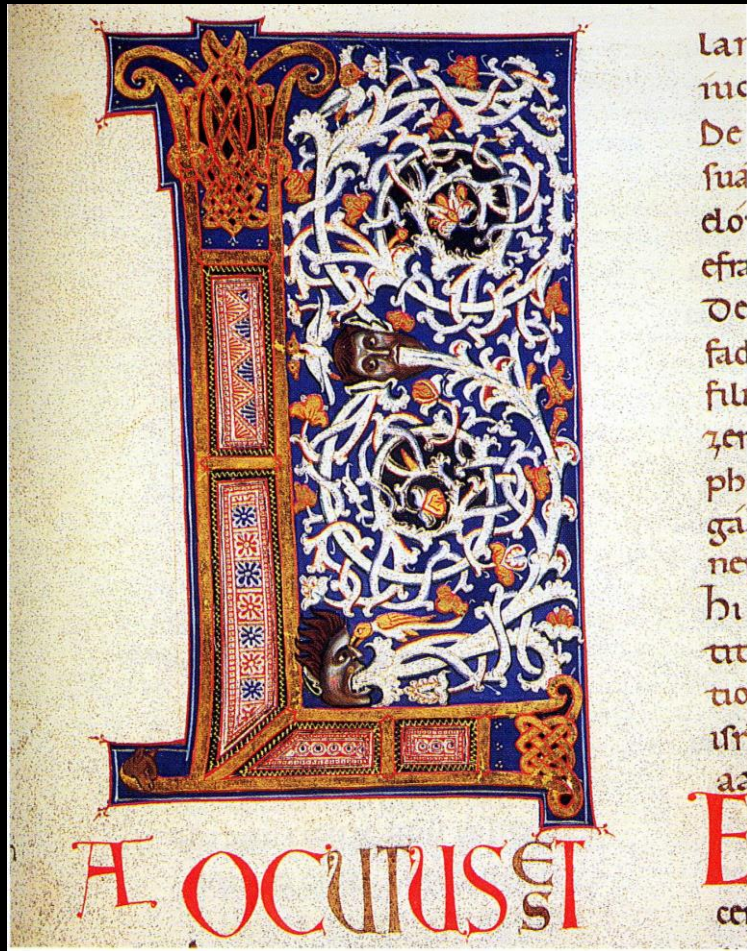 L
A OCUTUS EST
lar
iud
De
sua
elo
efra
De
fad
fili
zer
ph
ga
ne
hu
tit
tio
isr
aa
E
cer